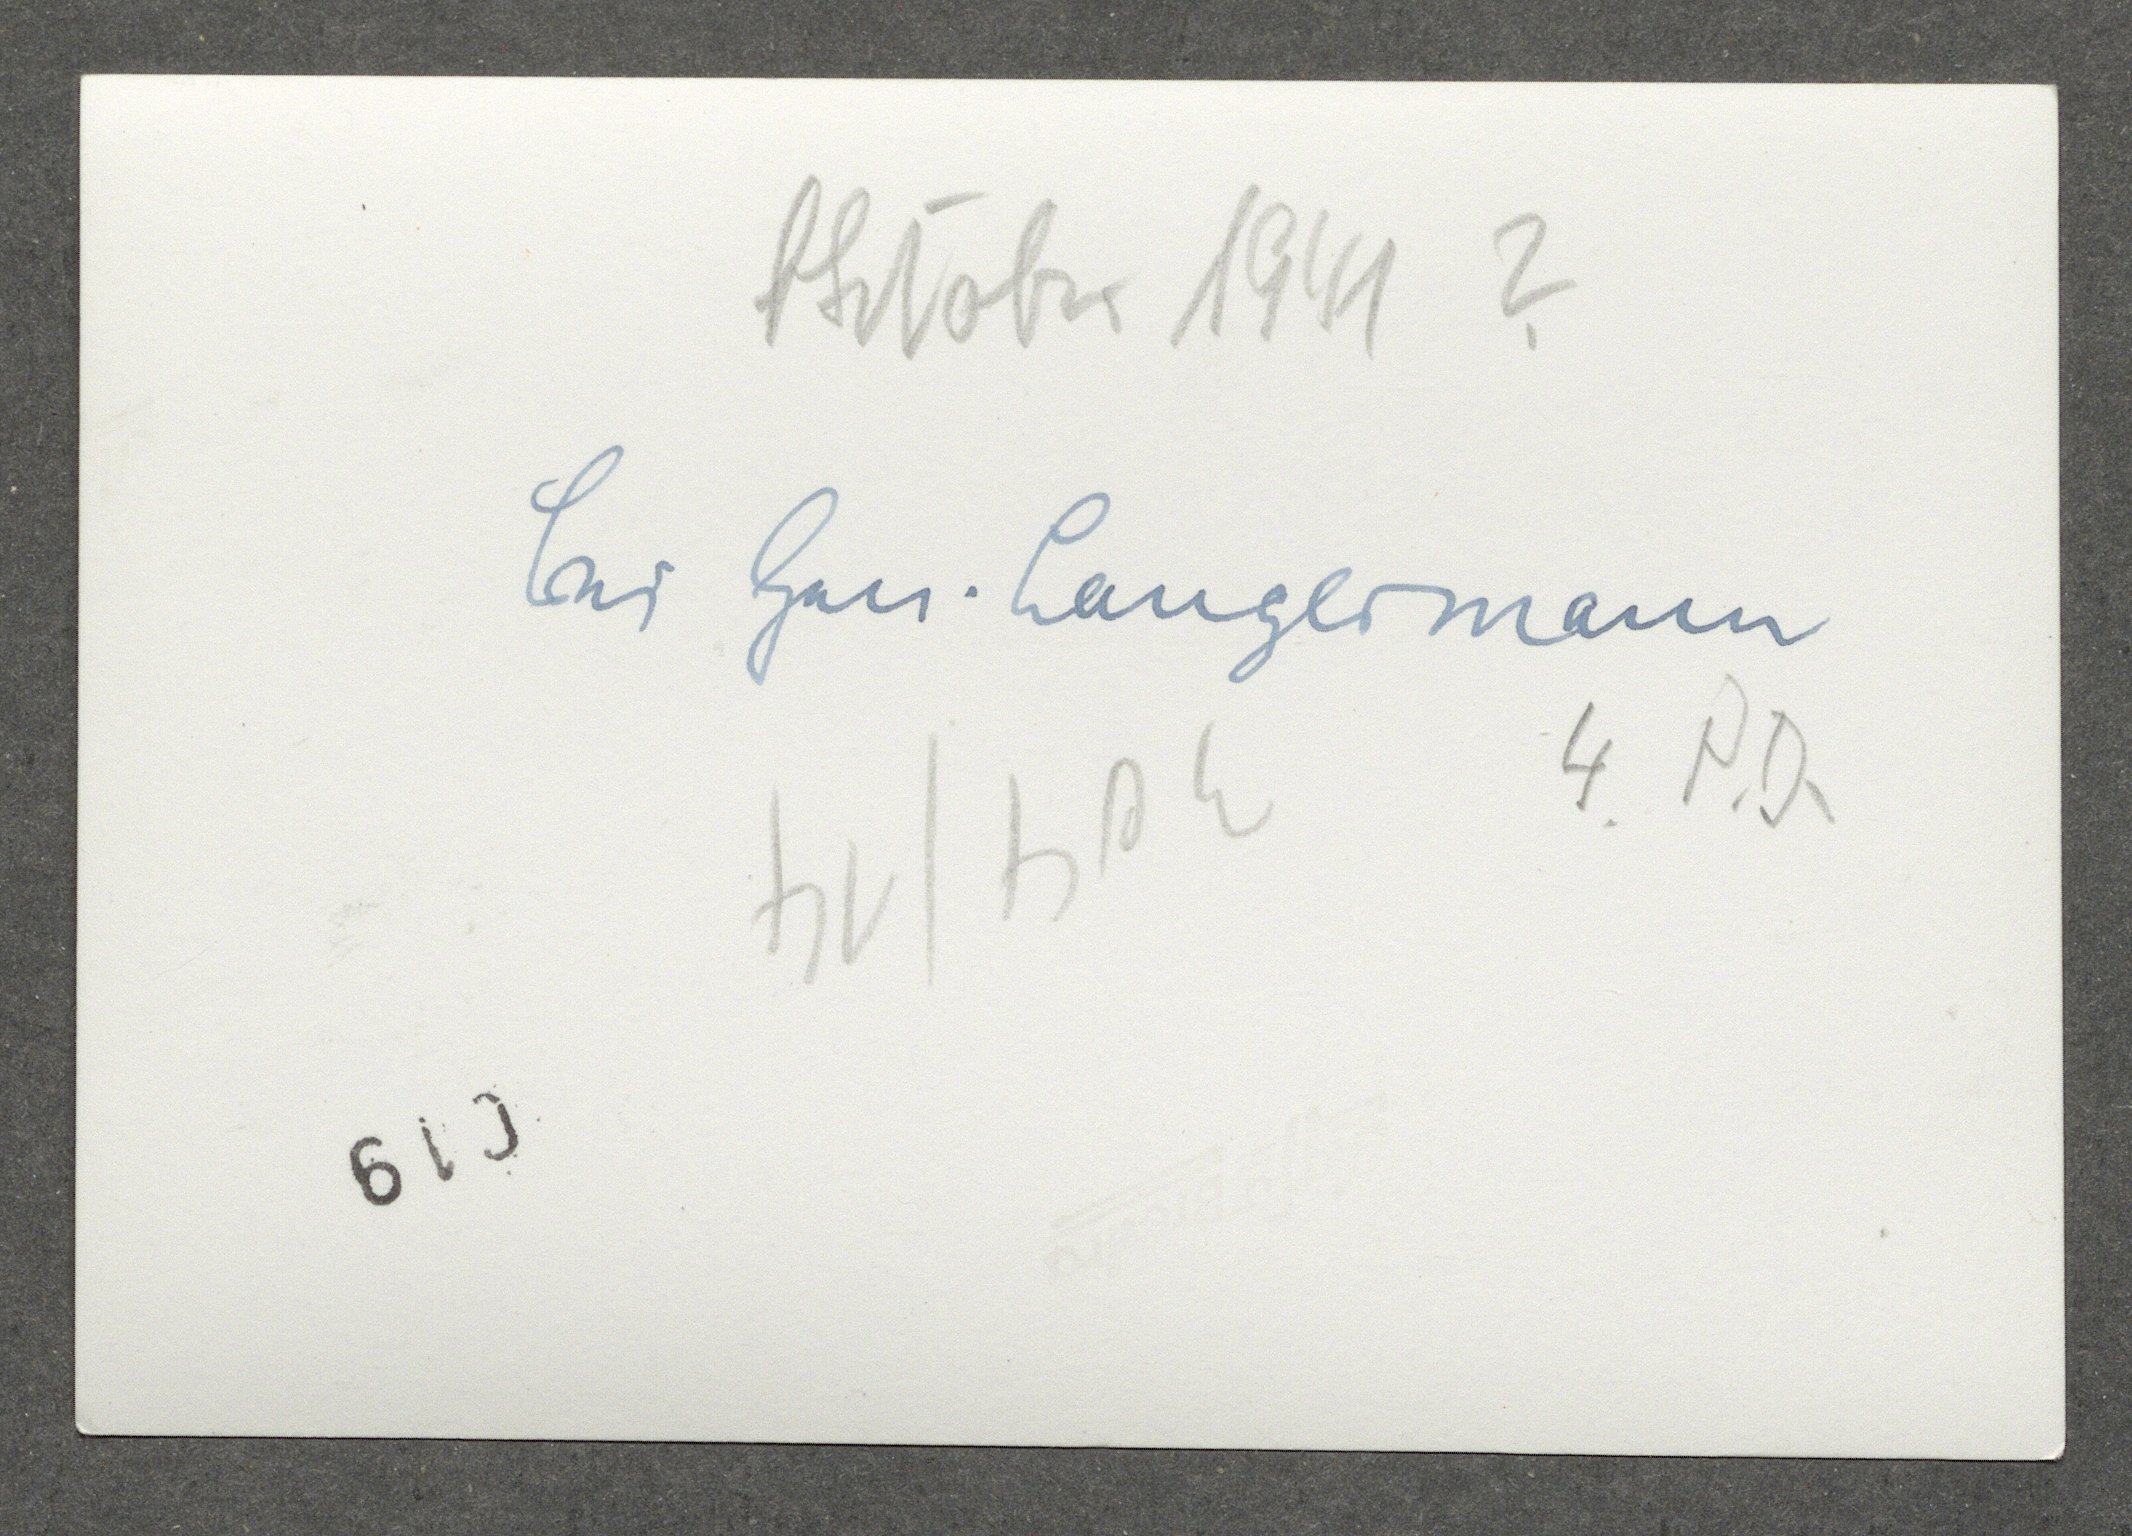 Oktober 1941 ?
bei Gen. Langermann
4. P.D.